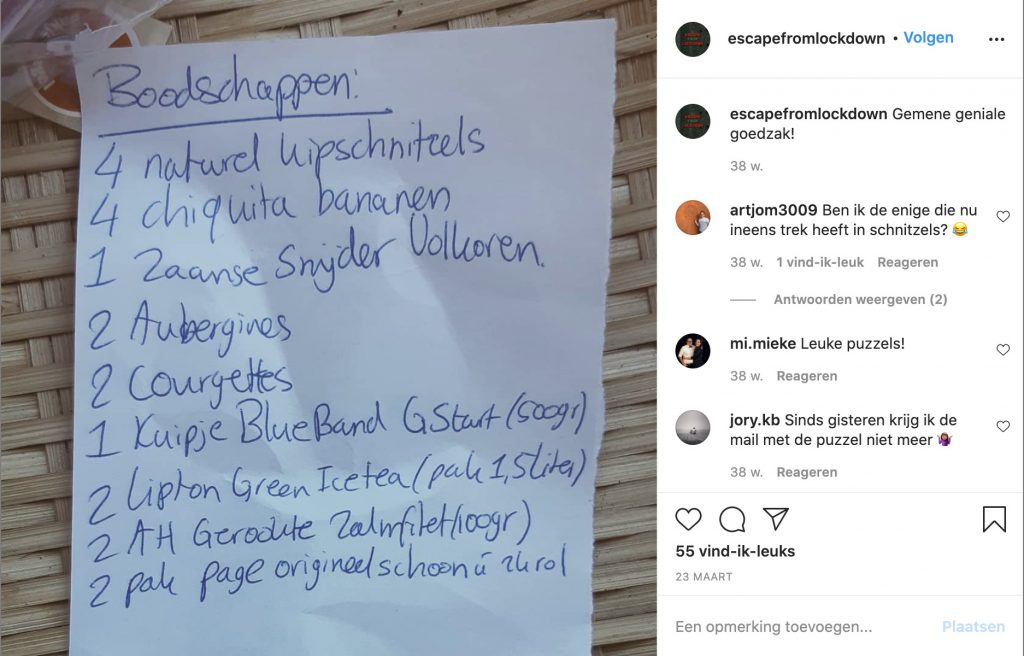 Boodschappen:
4 naturel kipschnitzels
4 chiquita bananen
1 Zaanse Snijder Volkoren.
2 Aubergines
2 Courgettes
1 Kuipje BlueBand GStart (500gr)
2 Lipton Green Icetea (pak 1,5liter)
2 AH Gerookte Zalmfilet (100gr)
2 pak page origineel schoon
escapefromlockdown • Volgen
escapefromlockdown Gemene geniale
goedzak!
38 w.
artjom3009 Ben ik de enige die nu
ineens trek heeft in schnitzels? 😂
38 w. 1 vind-ik-leuk Reageren
Antwoorden weergeven (2)
mi.mieke Leuke puzzels!
38 w. Reageren
jory.kb Sinds gisteren krijg ik de
mail met de puzzel niet meer 🤷🏾‍♀️
38 w. Reageren
55 vind-ik-leuks
23 MAART
Een opmerking toevoegen... Plaatsen